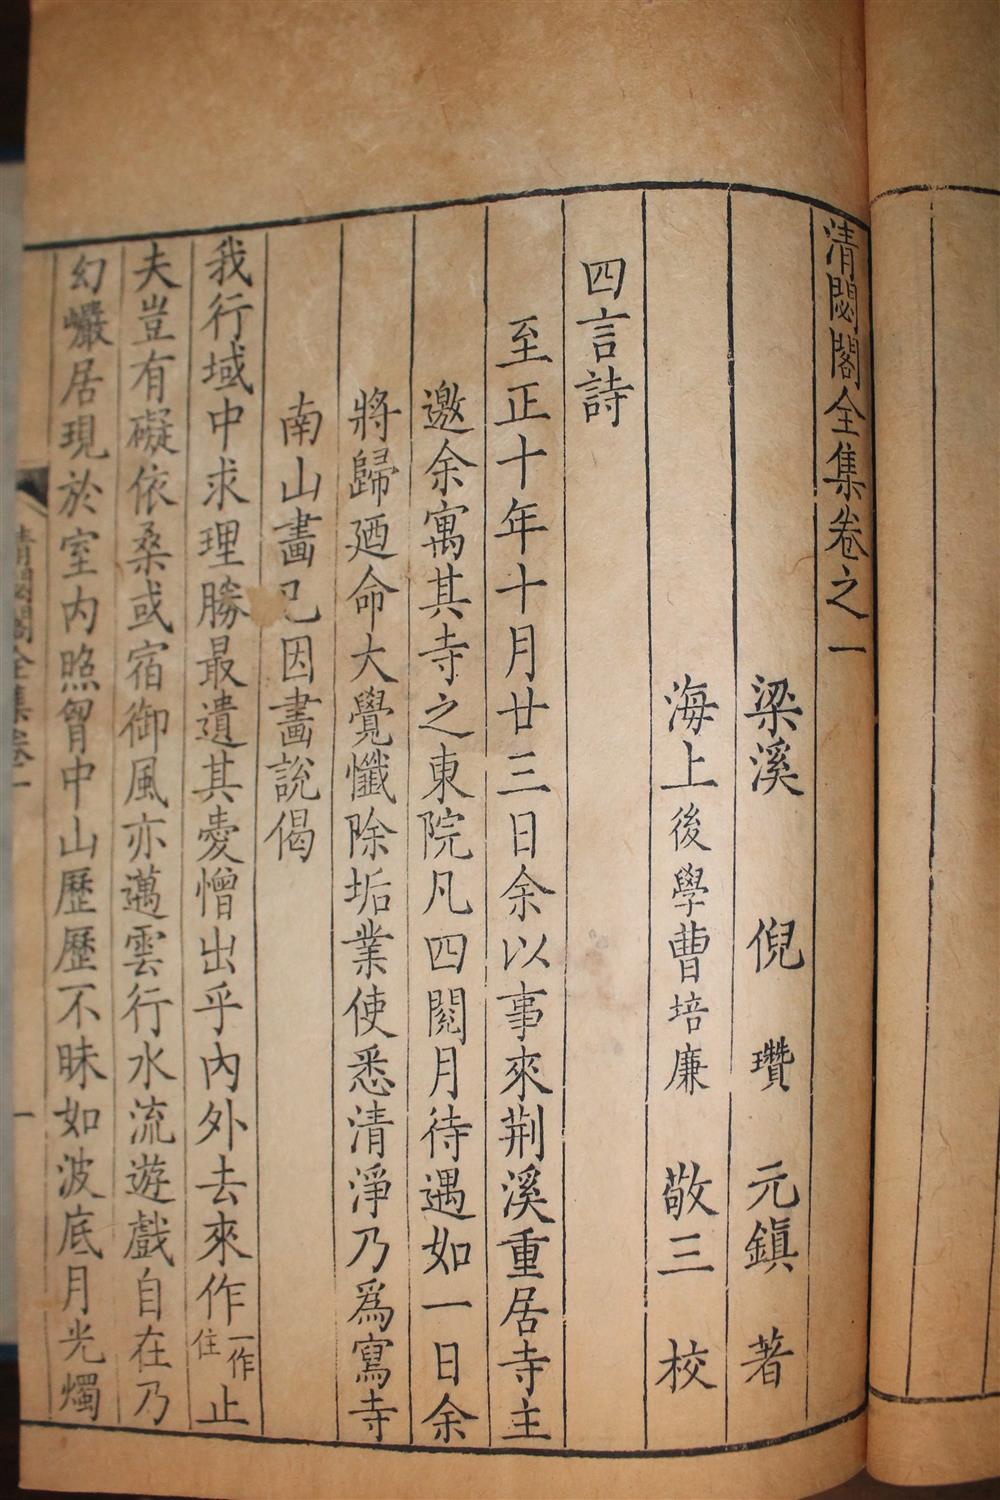 清閟閣全集卷之一
梁溪 倪 瓚 元鎮 著
海上後學曹培廉 敬三 校
四言詩
至正十年十月廿三日余以事來荆溪重居寺主
邀余寓其寺之東院凡四閱月待遇如一日余
將歸廼命大覺懺除垢業使悉清淨乃爲寫寺
南山畫已因畫說偈
我行域中求理勝最遺其憂憎出乎內外去來作一作住止
夫豈有礙依桑或宿御風亦邁雲行水流遊戲自在乃
幻巖居現於室內照胷中山歷歷不昧如波底月光燭
清閟閣全集卷一
一